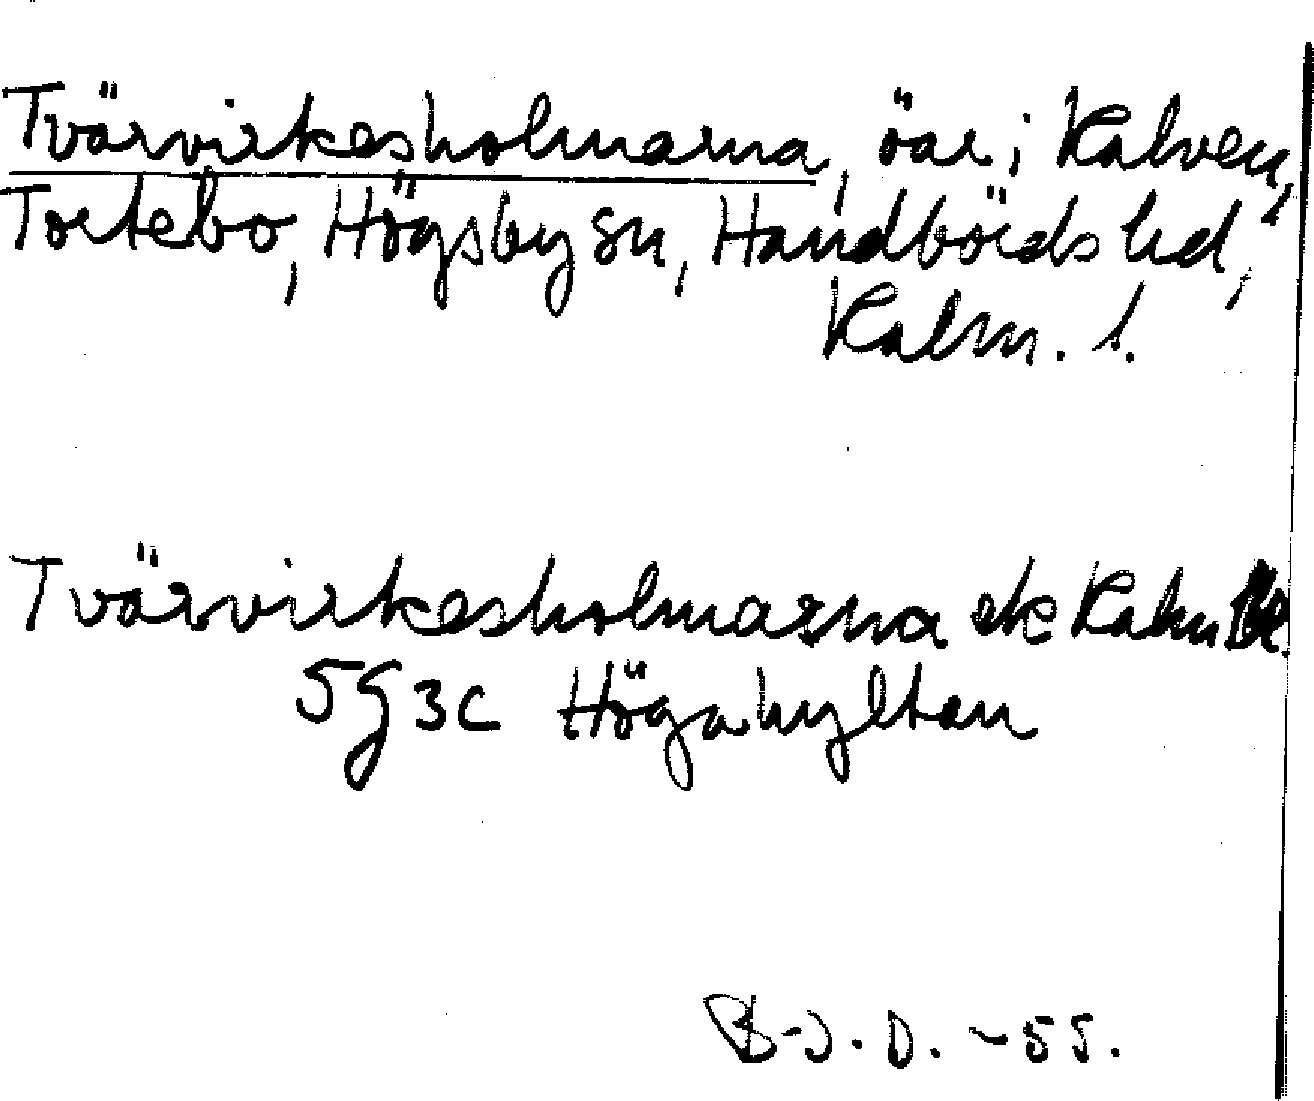 Tvärvirkesholmarna, öar i Kalven,
Tortebo, Högsby sn, Handbörds hd,
Kalm. l.
Tvärvirkesholmarna ek Kalm
5g3c Högahyltan
B-J.D. -55.